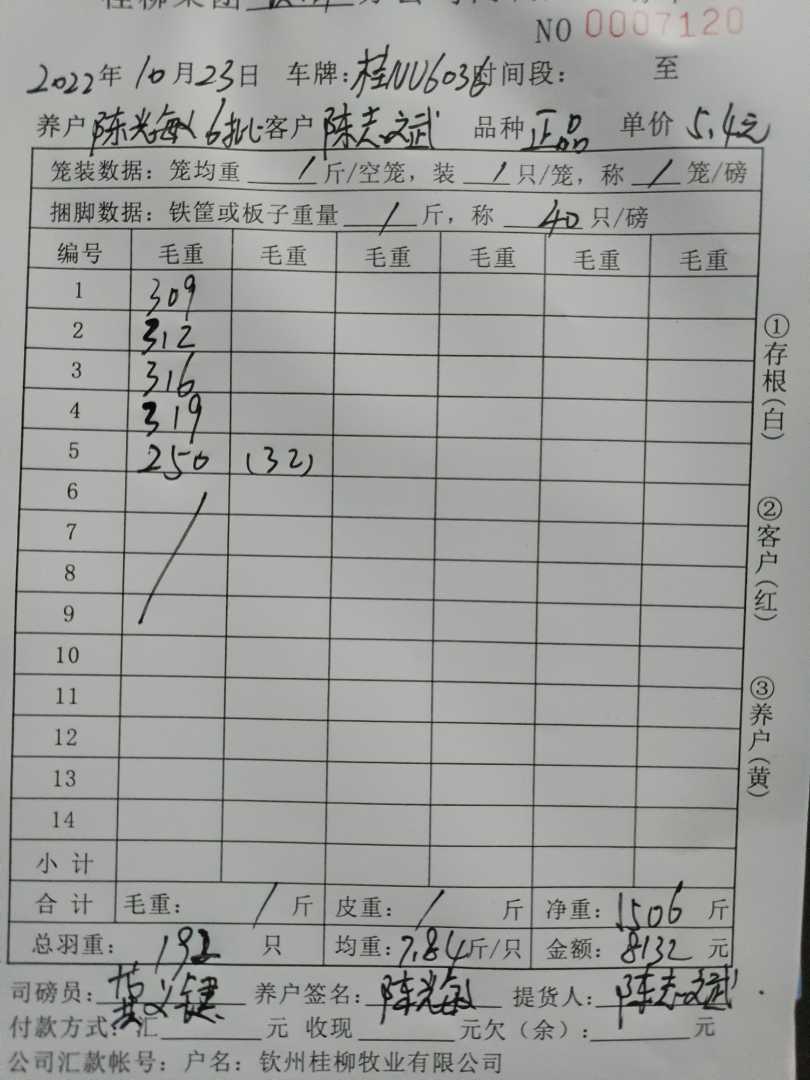 NO 0007120
2022年 10月23日 车牌:桂NU6036时间段: 至
养户 陈光敏 6批 客户 陈志武 品种 正品 单价 5.4元
笼装数据: 笼均重 / 斤/空笼, 装 / 只/笼, 称 / 笼/磅
捆脚数据: 铁筐或板子重量 / 斤, 称 40 只/磅
编号 毛重 毛重 毛重 毛重 毛重 毛重
1 309
2 312
3 316
4 319
5 250 (32)
6
7
8
9
10
11
12
13
14
小 计
合 计 毛重: / 斤 皮重: / 斤 净重: 1506 斤
总羽重: 192 只 均重: 7.84斤/只 金额: 8132 元
司磅员: 养户签名: 陈光敏 提货人: 陈志武
付款方式: 汇 元 收现 元欠(余): 元
公司汇款帐号: 户名: 钦州桂柳牧业有限公司
①存根(白)
②客户(红)
③养户(黄)